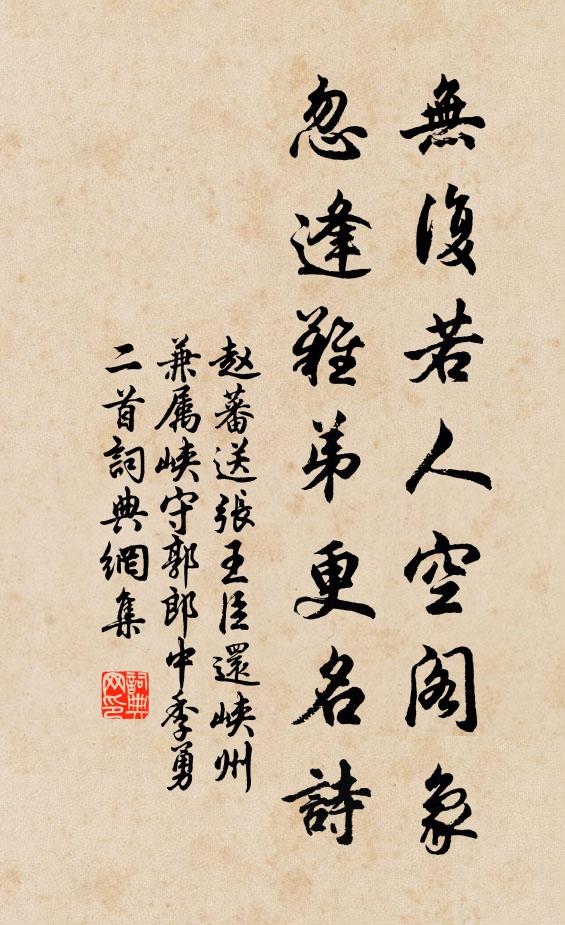 無復若人空阁象
忽逢難弟更名詩
赵蕃送張王臣還峡州
兼属峡守郭郎中季勇
二首詞典網集
詞典
网印